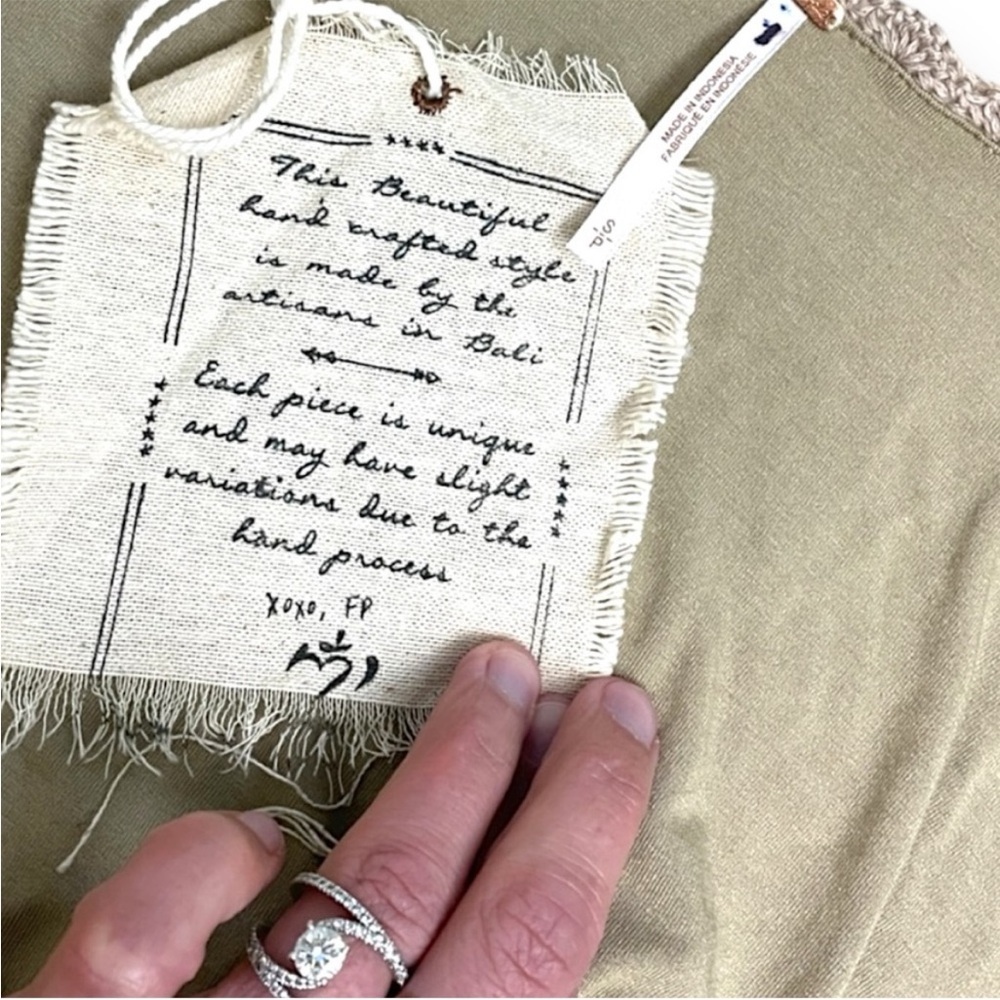 This Beautiful
hand crafted style
is made by the
artisans in Bali
Each piece is unique
and may have slight
variations due to the
hand process
xoxo, FP
MADE IN INDONESIA
FABRIQUÉ EN INDONÉSIE
S:P